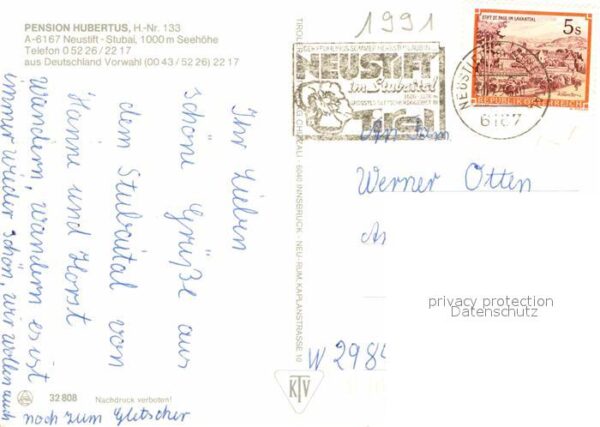 PENSION HUBERTUS, H.-Nr. 133
A-6167 Neustift - Stubai, 1000 m Seehöhe
Telefon 0 52 26 / 22 17
aus Deutschland Vorwahl (00 43 / 52 26) 22 17
Ihr Lieben
schöne Grüße aus
dem Stubaital von
Hanne und Horst
wandern, wandern es ist
immer wieder schön, wir wollen auch
noch zum Gletscher
32 808
Nachdruck verboten!
6040 INNSBRUCK - NEU-RUM, KAPLANSTRASSE 10
KTV
1991
NEUSTIFT
im Stubaital
Tirol
6167
STIFT ST. PAUL IM LAVANTTAL
5s
REPUBLIK ÖSTERREICH
Werner Otten
W 2984
privacy protection
Datenschutz